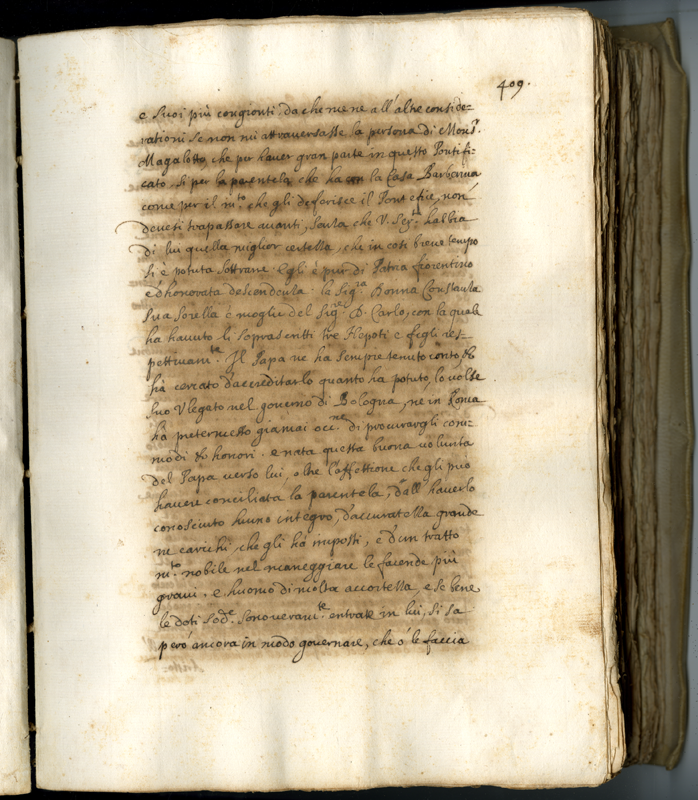 409.
e suoi più congionti. da che me ne all'altre conside=
rationi se non mi attraversasse la persona di Mons.r
Magalotto, che per haver gran parte in questo Pontifi=
cato, si per la parentela che ha con la Casa Barberina
come per il m.to che gli deferisce il Pontefice, non
devesi trapassare avanti, senza che V. Ser.tà habbia
di lui quella miglior certezza, che in così breve tempo
si è potuta sottrare. Egli è pur di Patria fiorentino
e d'honorata descendenza. la Sig.ra Donna Constanza
sua sorella è moglie del Sig.r D. Carlo, con la quale
ha havuto li soprascritti tre Nepoti e figli res=
pettivam.te. Il Papa ne ha sempre tenuto conto, &
hà cercato d'accreditarlo quanto ha potuto, lo volse
suo Vlegato nel governo di Bologna, ne in Roma
ha pretermesso giamai occ.ne di procurargli com=
modi & honori. e nata questa buona volunta
del Papa verso lui, oltre l'affettione che gli può
havere conciliata la parentela, dall' haverlo
conosciuto huomo integro, d'accuratezza grande
ne carichi, che gli hà imposti, e d'un tratto
m.to nobile nel maneggiare le facende più
gravi. e huomo di molta accortezza, e se bene
le doti sod.e sono veram.te entrate in lui, si sa
però ancora in modo governare, che o le faccia